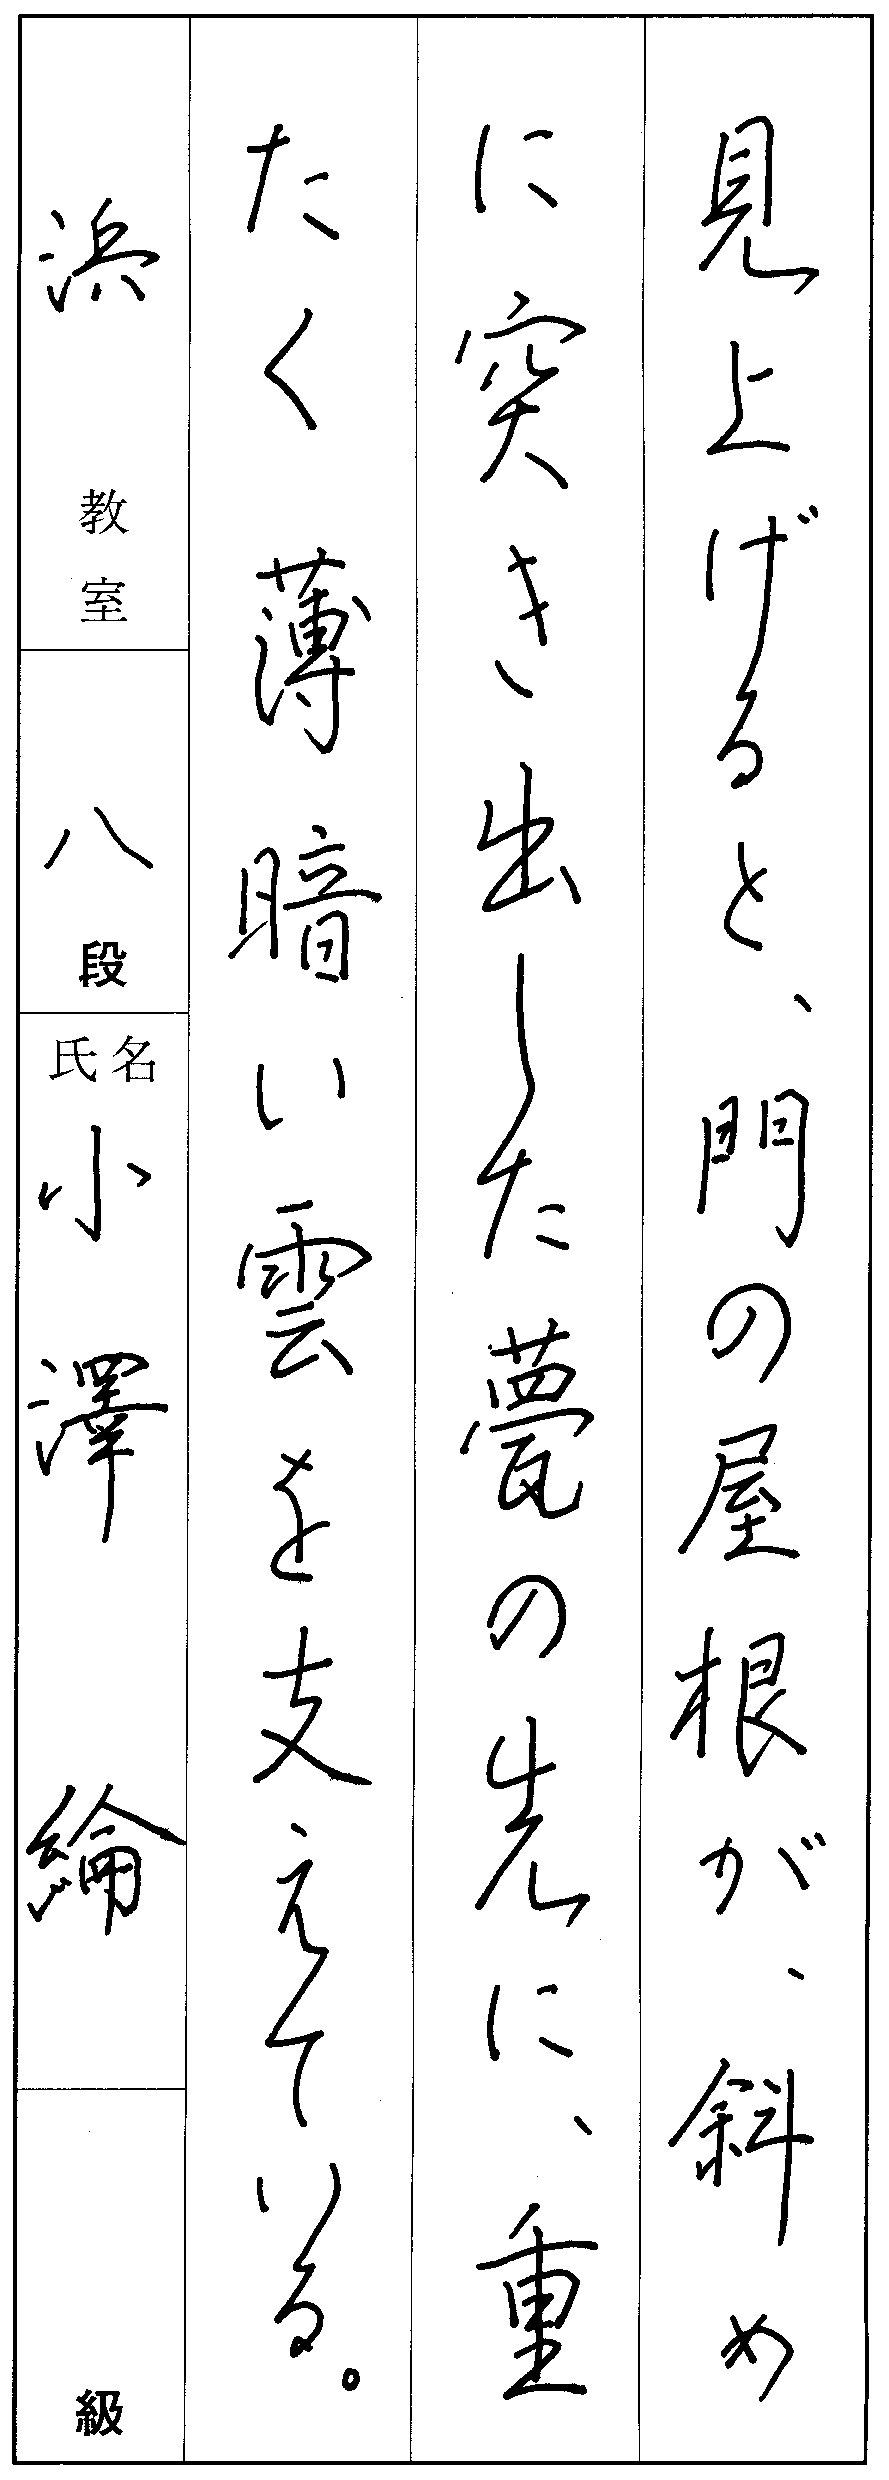 見上げると、門の屋根が、斜め
に突き出した甍の先に、重
たく薄暗い雲を支えている。
浜教室
八段
氏名
小澤 綸
級